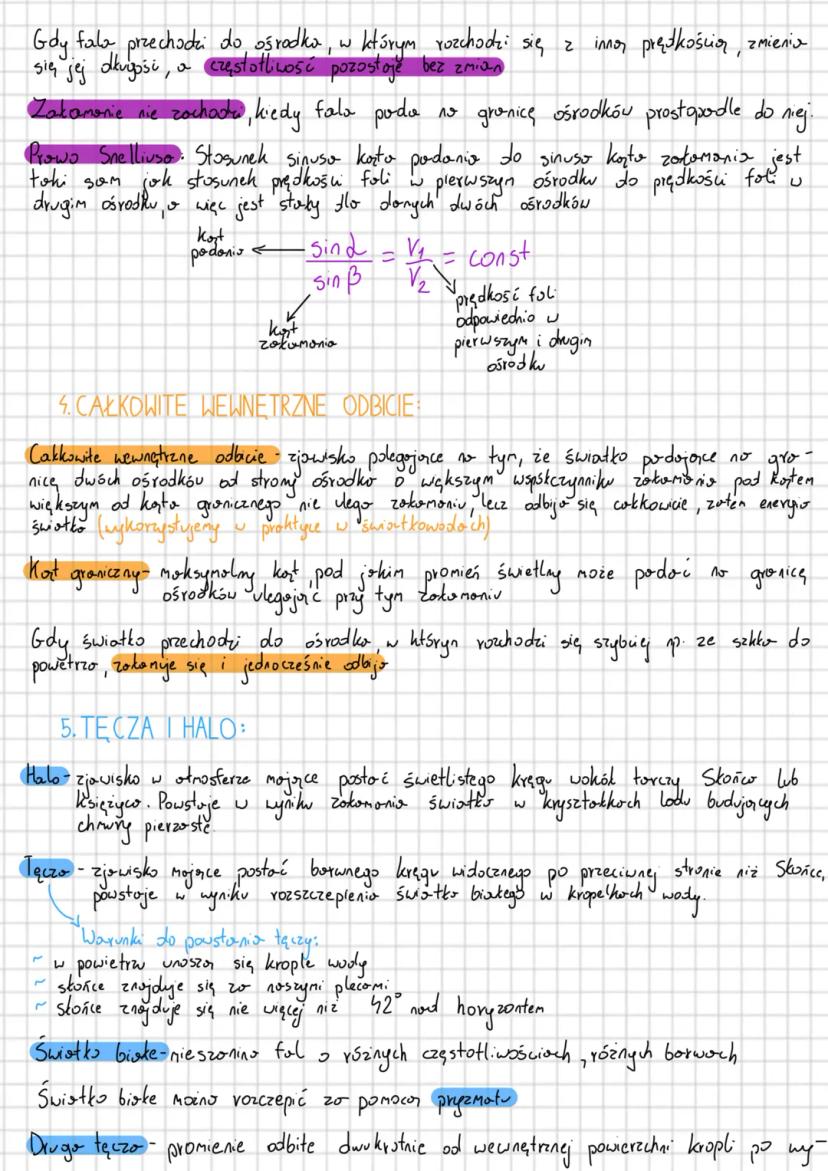 Gdy fala przechodzi do ośrodka, w którym rozchodzi się z inną prędkością, zmienia
się jej długość, a częstotliwość pozostaje bez zmian
Załamanie nie zachodzi, kiedy fala pada na granicę ośrodków prostopadle do niej.
Prawo Snelliusa: Stosunek sinusa kąta padania do sinusa kąta załamania jest
taki sam jak stosunek prędkości fali w pierwszym ośrodku do prędkości fali w
drugim ośrodku, a więc jest stały dla danych dwóch ośrodków
kąt
padania
sin α / sin β = V₁ / V₂ = const
kąt
załamania
prędkość fali
odpowiednio w
pierwszym i drugim
ośrodku
4. CAŁKOWITE WEWNĘTRZNE ODBICIE:
Całkowite wewnętrzne odbicie - zjawisko polegające na tym, że światło padające na gra-
nicę dwóch ośrodków od strony ośrodka o większym współczynniku załamania pod kątem
większym od kąta granicznego nie ulega załamaniu, lecz odbija się całkowicie, zatem energia
światła (wykorzystujemy w praktyce w światłowodach)
Kąt graniczny - maksymalny kąt, pod jakim promień świetlny może padać na granicę
ośrodków ulegając przy tym załamaniu
Gdy światło przechodzi do ośrodka, w którym rozchodzi się szybciej np. ze szkła do
powietrza, załamuje się i jednocześnie odbija
5. TĘCZA I HALO:
Halo - zjawisko w atmosferze mające postać świetlistego kręgu wokół tarczy Słońca lub
Księżyca. Powstaje w wyniku załamania światła w kryształkach lodu budujących
chmury pierzaste.
Tęcza - zjawisko mające postać barwnego kręgu widocznego po przeciwnej stronie niż Słońce,
powstaje w wyniku rozszczepienia światła białego w kropelkach wody.
Warunki do powstania tęczy:
~ w powietrzu unoszą się krople wody
~ słońce znajduje się za naszymi plecami
~ słońce znajduje się nie więcej niż 42° nad horyzontem
Światło białe - mieszanina fal o różnych częstotliwościach, różnych barwach
Światło białe można rozczepić za pomocą pryzmatu
Druga tęcza - promienie odbite dwukrotnie od wewnętrznej powierzchni kropli po wy-